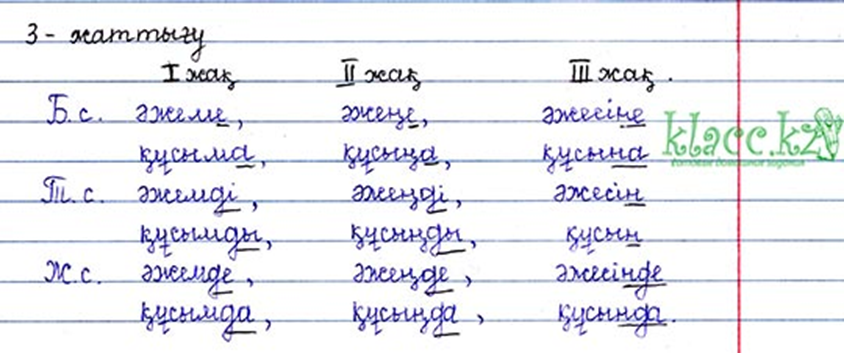 3 - жаттығу
I жақ II жақ III жақ.
Б.с. әжеме, әжеңе, әжесіне
құсыма, құсыңа, құсына
klacc.kz
Т.с. әжемді, әжеңді, әжесін
құсымды, құсыңды, құсын
Ж.с. әжемде, әжеңде, әжесінде
құсымда, құсыңда, құсында.